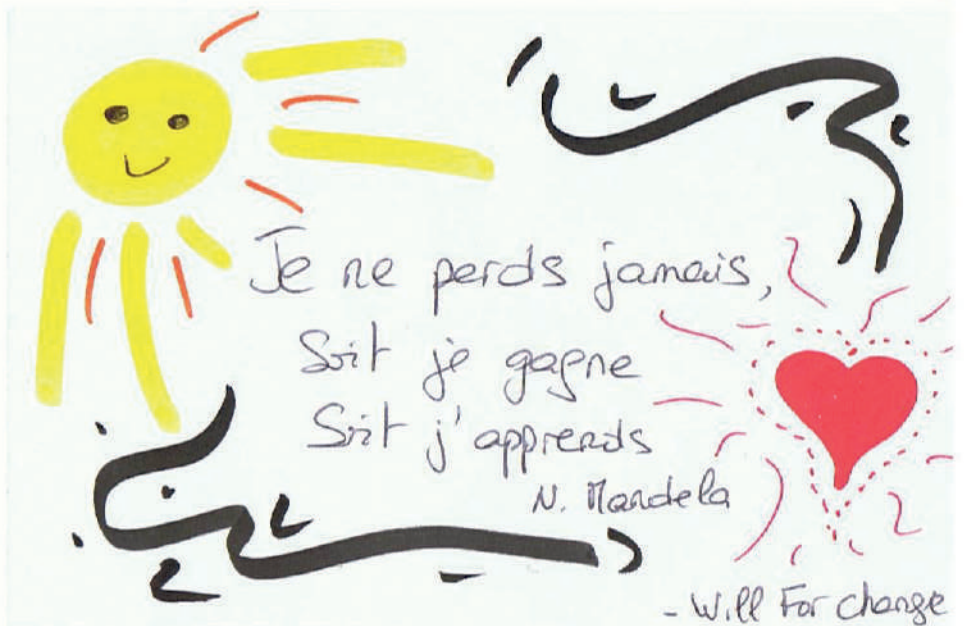 Je ne perds jamais,
Soit je gagne
Soit j'apprends
N. Mandela
- Will For change